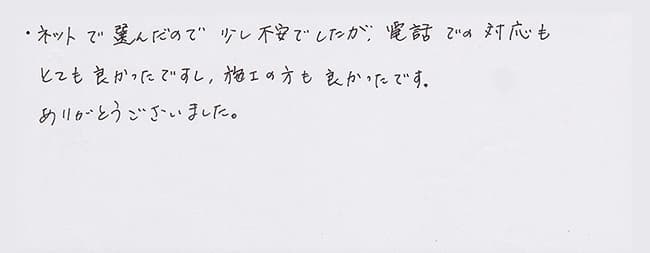 ・ネットで選んだので少し不安でしたが、電話での対応も
とても良かったですし、施工の方も良かったです。
ありがとうございました。